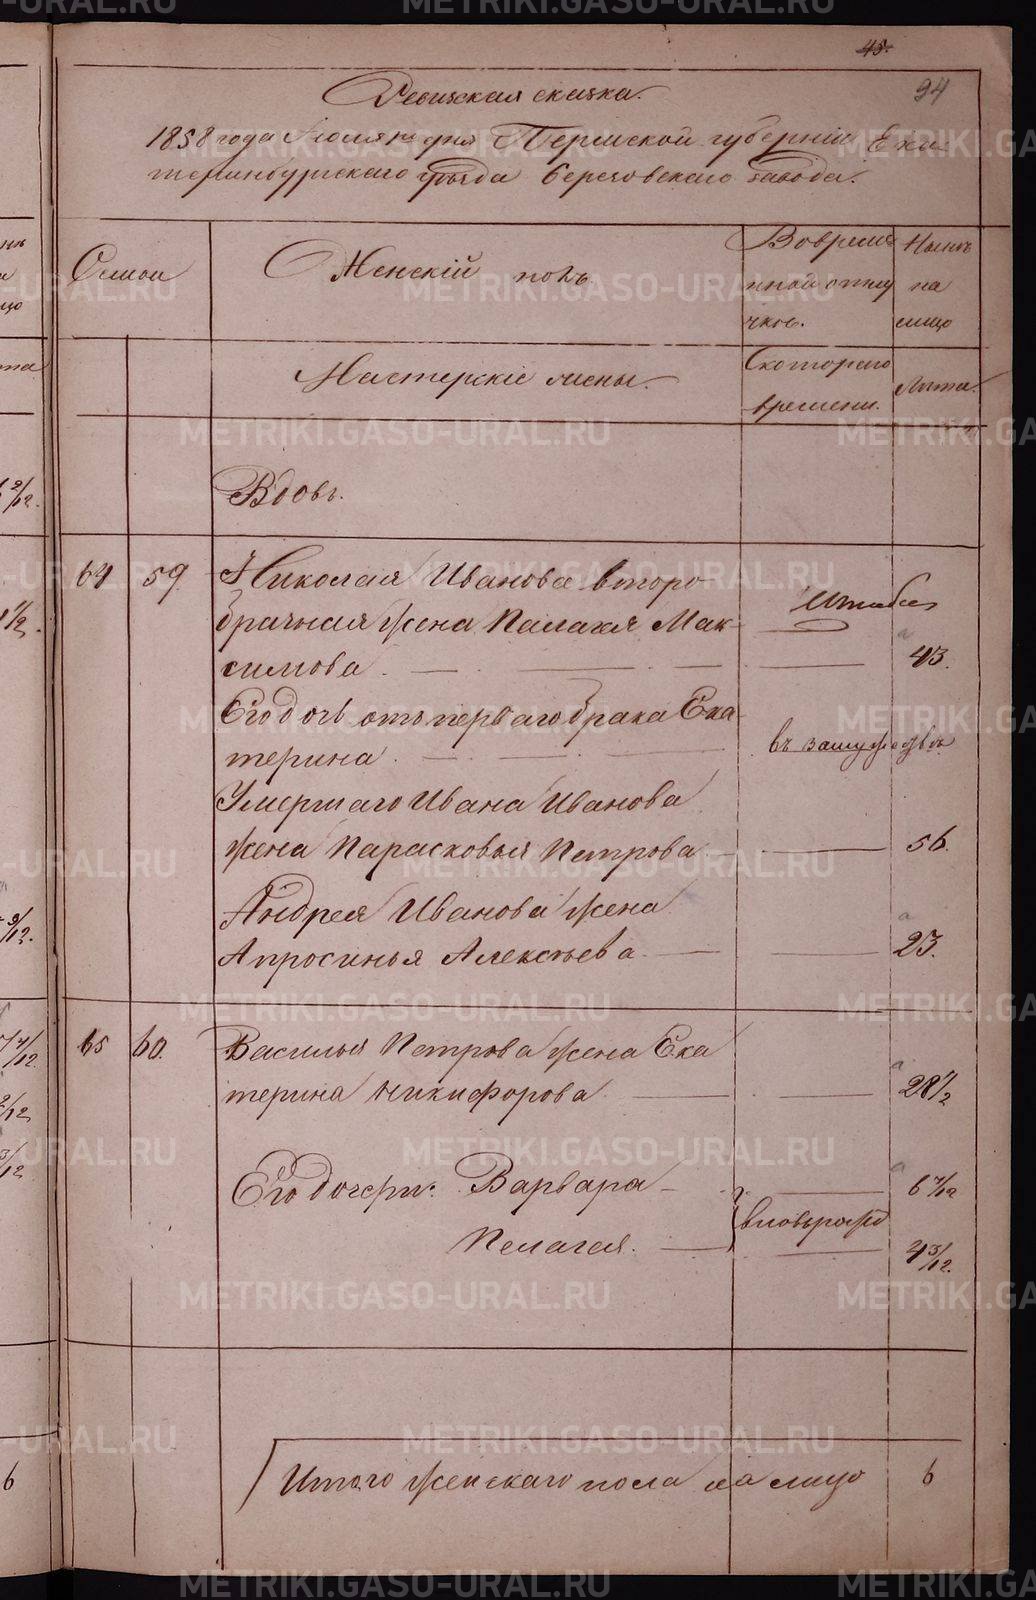 45.
94
Ревизская сказка.
1858 года Июля дня Пермской губерніи Ека
теринбургскаго уѣзда Березовскаго завода.
Семьи
Женскій полъ.
Вовремен
ной отлу
чкѣ.
Нынѣ
на
лицо
Мастерскіе жены.
Скотораго
времени.
Лѣта.
Вдовъ.
64 59 Николая Иванова второ
брачная жена Палагея Мак
симова 43.
Его дочь отъ перваго брака Ека
терина въ замужествѣ
Умершаго Ивана Иванова
жена Парасковья Петрова 56.
Андрея Иванова жена
Апросинья Алексѣева 23.
65 60. Василья Петрова жена Ека
терина Никифорова 28 1/2
Его дочери: Варвара 6 7/12
вновьрожд
Пелагея. 4 3/12.
Итого женскаго пола на лицо 6
METRIKI.GASO-URAL.RU